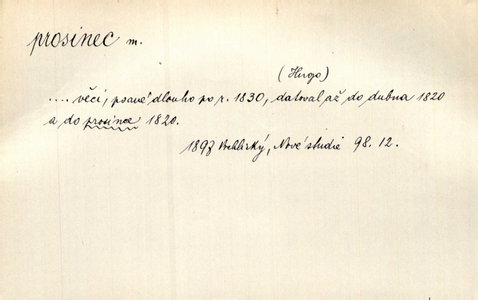 prosinec m.
(Hugo)
.... věci, psané dlouho po r. 1830, datoval až do dubna 1820
a do prosince 1820.
1897 Vrchlický, Nové studie 98.12.